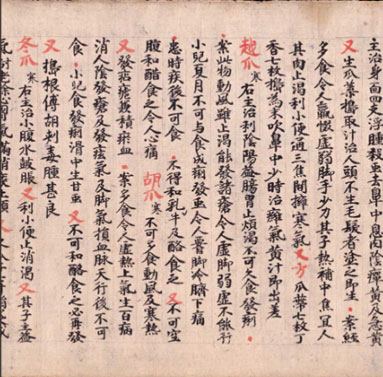 主治身面四支浮腫殺蠱去鼻中息肉陰癉黃及急黃
又生瓜葉搗取汁治人頭不生毛髮者塗之即生・案經
多食令人羸惙虛弱脚手少力其子熱補中焦宜人
其肉止渴利小便通三焦間擁塞氣又方瓜蒂七枚丁
香七枚搗為末吹鼻中少時治癰氣黃汁即出差
越瓜寒右主治利陰陽益腸胃止煩渴不可久食發痢・
案此物動風雖止渴能發諸瘡令人虛脚弱虛不能行
小兒夏月不可与食成痢發虫令人腰脚冷臍下痛
患時疾後不可食・不得和牛乳及酪食之又不可空
腹和醋食之令人心痛胡瓜寒不可多食動風及寒熱
又發痁瘧兼積瘀血・案多食令人虛熱上氣生百病
消人陰發瘡及發疰氣及脚氣損血脉天行後不可
食・小兒食發痢滑中生甘虫又不可和酪食之必再發
又搗根傅胡刺毒腫甚良
冬瓜寒右主治小腹水鼓脹又利小便止消渴又其子主益
氣耐老除心胷氣滿消痰